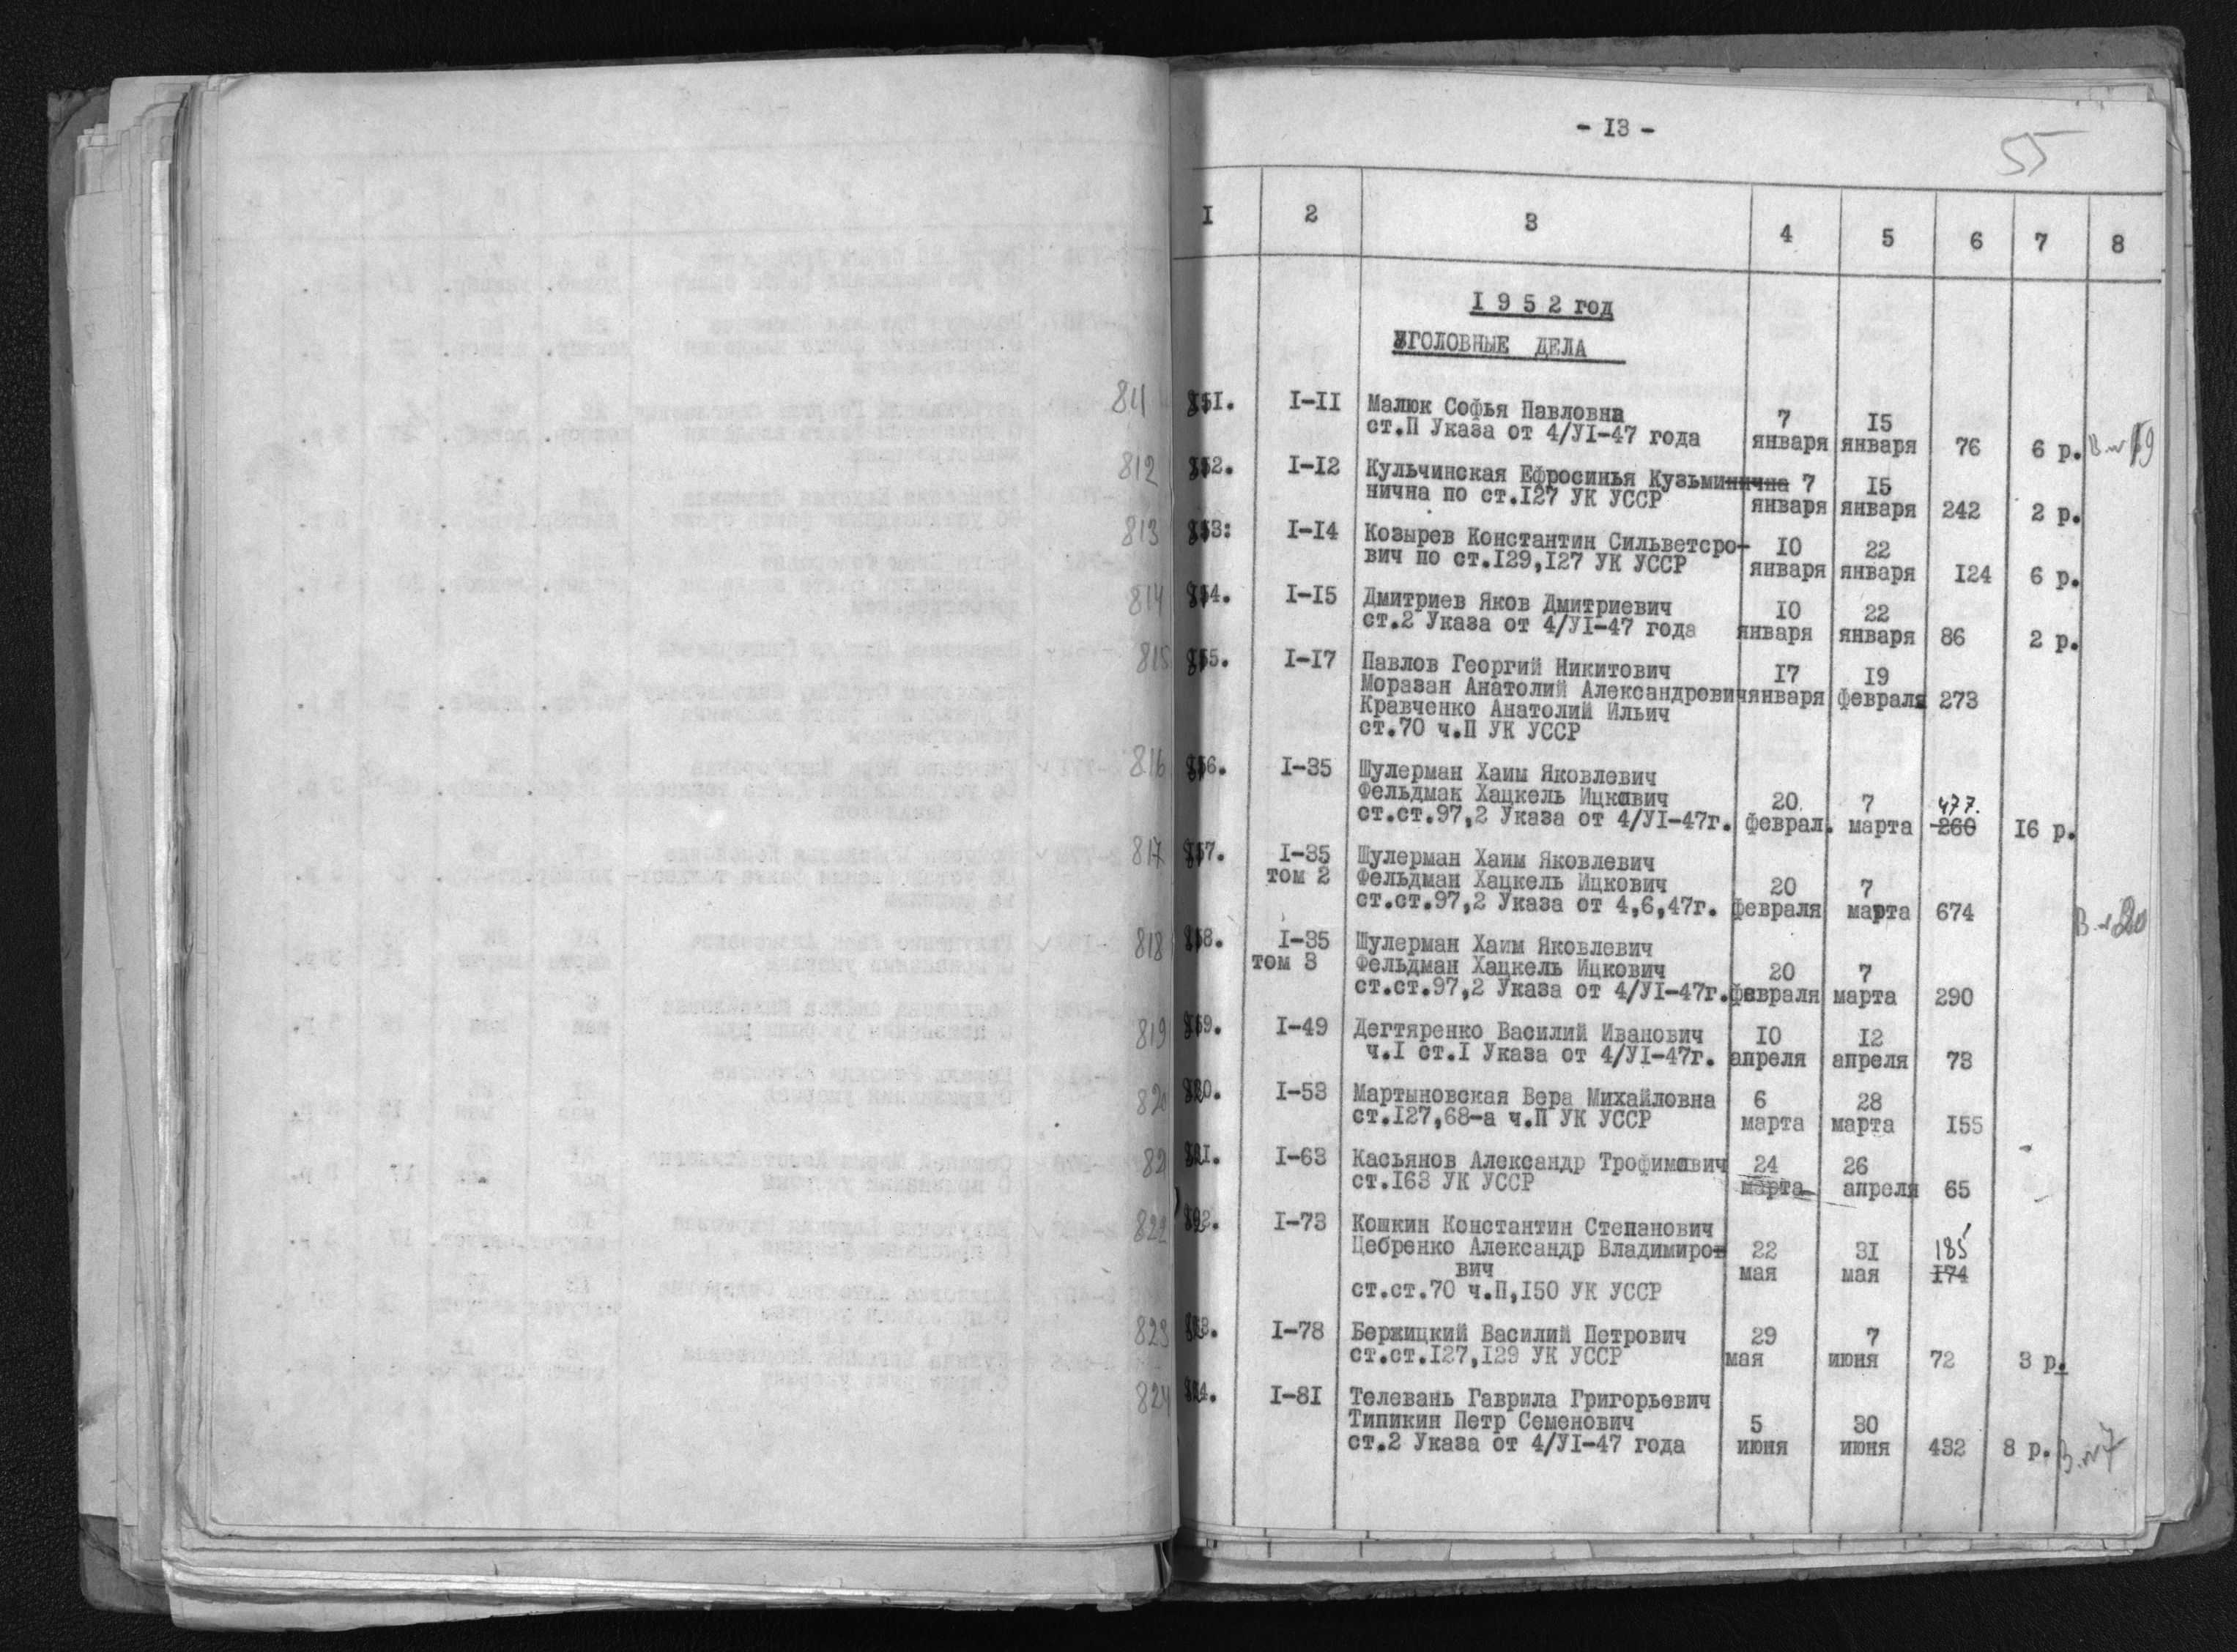 - I3 -
55
I 2 3 4 5 6 7 8
I 9 5 2 год
УГОЛОВНЫЕ ДЕЛА
811 I-II Малюк Софья Павловна
ст.П Указа от 4/УI-47 года 7 января I5 января 76 6 р.
812 I-I2 Кульчинская Ефросинья Кузьминична
нична по ст.I27 УК УССР 7 января I5 января 242 2 р.
813 I-I4 Козырев Константин Сильветсро-
вич по ст.I29,I27 УК УССР I0 января 22 января I24 6 р.
814 I-I5 Дмитриев Яков Дмитриевич
ст.2 Указа от 4/УI-47 года I0 января 22 января 86 2 р.
815 I-I7 Павлов Георгий Никитович I7 I9
Моразан Анатолий Александрович января февраля 273
Кравченко Анатолий Ильич
ст.70 ч.П УК УССР
816 I-35 Шулерман Хаим Яковлевич
Фельдмак Хацкель Ицкович 20 7 477.
ст.ст.97,2 Указа от 4/УI-47г. феврал. марта 260 I6 р.
817 I-35 Шулерман Хаим Яковлевич
том 2 Фельдман Хацкель Ицкович 20 7
ст.ст.97,2 Указа от 4,6,47г. февраля марта 674
818 I-35 Шулерман Хаим Яковлевич
том 3 Фельдман Хацкель Ицкович 20 7
ст.ст.97,2 Указа от 4/УI-47г. февраля марта 290
819 I-49 Дегтяренко Василий Иванович I0 I2
ч.I ст.I Указа от 4/УI-47г. апреля апреля 73
820 I-53 Мартыновская Вера Михайловна 6 28
ст.I27,68-а ч.П УК УССР марта марта I55
82 I-63 Касьянов Александр Трофимович 24 26
ст.I63 УК УССР марта апреля 65
822 I-73 Кошкин Константин Степанович
Цебренко Александр Владимиро 22 3I 185
вич мая мая I74
ст.ст.70 ч.П,I50 УК УССР
823 I-78 Бержицкий Василий Петрович 29 7
ст.ст.I27,I29 УК УССР мая июня 72 3 р.
824 I-8I Телевань Гаврила Григорьевич
Типикин Петр Семенович 5 30
ст.2 Указа от 4/УI-47 года июня июня 432 8 р.